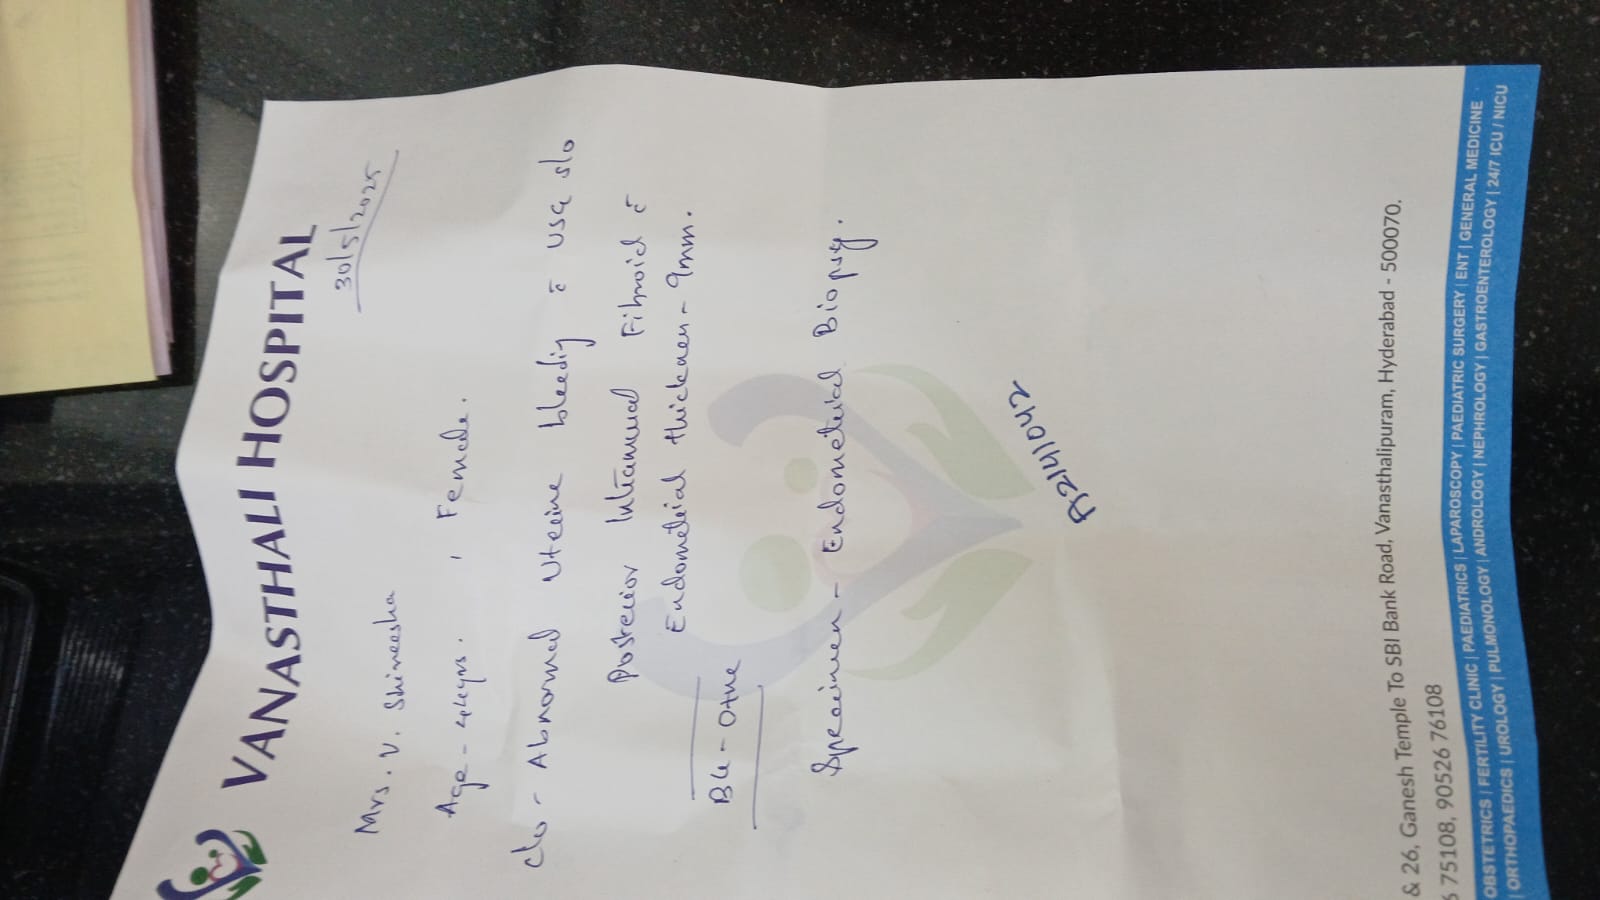 VANASTHALI HOSPITAL
30/5/2025
Mrs. V. Shireesha
Age - 44yrs. , Female.
c/o - Abnormal Uterine bleedig c̄ USG s/o
Posterior Intramural Fibroid c̄
Endometrial thickness - 9mm.
B4 - O+ve
Specimen - Endometrial Biopsy.
& 26, Ganesh Temple To SBI Bank Road, Vanasthalipuram, Hyderabad - 500070.
75108, 90526 76108
OBSTETRICS | FERTILITY CLINIC | PAEDIATRICS | LAPAROSCOPY | PAEDIATRIC SURGERY | ENT | GENERAL MEDICINE
| ORTHOPAEDICS | UROLOGY | PULMONOLOGY | ANDROLOGY | NEPHROLOGY | GASTROENTEROLOGY | 24/7 ICU / NICU